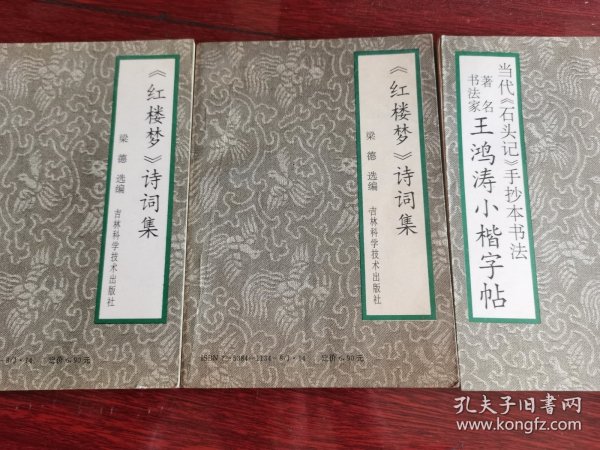 《红楼梦》诗词集
梁德 选编
吉林科学技术出版社
定价
《红楼梦》诗词集
梁德 选编
吉林科学技术出版社
定价
当代《石头记》手抄本书法
著名
书法家
王鸿涛小楷字帖
孔夫子旧书网
www.kongfz.com